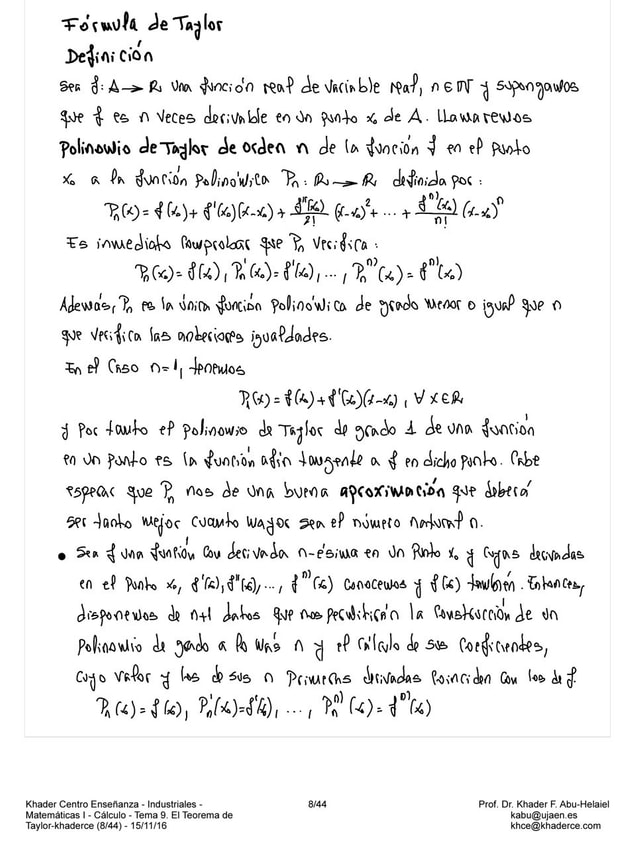 Fórmula de Taylor
Definición
Sea f: A → R una función real de variable real, n ∈ N y supongamos
que f es n veces derivable en un punto x₀ de A. Llamaremos
Polinomio de Taylor de orden n de la función f en el punto
x₀ a la función polinómica Pₙ: R → R definida por:
Pₙ(x) = f(x₀) + f'(x₀)(x-x₀) + f''(x₀)/2! (x-x₀)² + ... + fⁿ⁾(x₀)/n! (x-x₀)ⁿ
Es inmediato comprobar que Pₙ verifica:
Pₙ(x₀) = f(x₀), Pₙ'(x₀) = f'(x₀), ..., Pₙⁿ⁾(x₀) = fⁿ⁾(x₀)
Además, Pₙ es la única función polinómica de grado menor o igual que n
que verifica las anteriores igualdades.
En el caso n=1, tenemos
P₁(x) = f(x₀) + f'(x₀)(x-x₀), ∀ x ∈ R
y por tanto el polinomio de Taylor de grado 1 de una función
en un punto es la función afín tangente a f en dicho punto. Cabe
esperar que Pₙ nos de una buena aproximación que deberá
ser tanto mejor cuanto mayor sea el número natural n.
• Sea f una función con derivada n-ésima en un punto x₀ y cuyas derivadas
en el punto x₀, f'(x₀), f''(x₀), ..., fⁿ⁾(x₀) conocemos y f(x₀) también. Entonces,
disponemos de n+1 datos que nos permitirán la construcción de un
polinomio de grado a lo más n y el cálculo de sus coeficientes,
cuyo valor y los de sus n primeras derivadas coinciden con los de f.
Pₙ(x₀) = f(x₀), Pₙ'(x₀) = f'(x₀), ..., Pₙⁿ⁾(x₀) = fⁿ⁾(x₀)
Khader Centro Enseñanza - Industriales -
Matemáticas I - Cálculo - Tema 9. El Teorema de
Taylor-khaderce (8/44) - 15/11/16
8/44
Prof. Dr. Khader F. Abu-Helaiel
kabu@ujaen.es
khce@khaderce.com